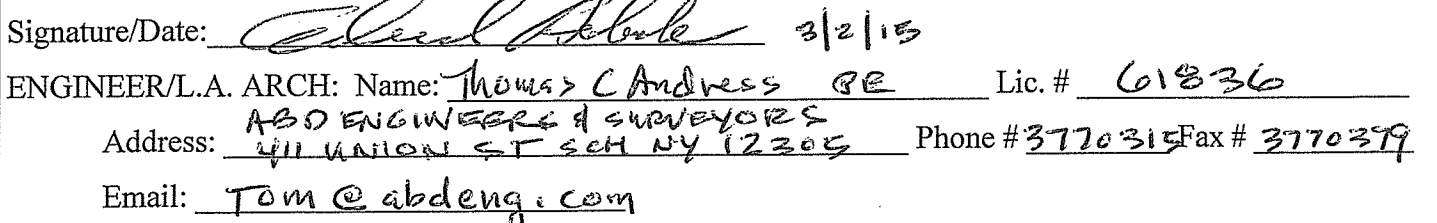 Signature/Date: 3/2/15
ENGINEER/L.A. ARCH: Name: Thomas C Andress PE Lic. # 61836
ABD ENGINEERS & SURVEYORS
Address: 411 UNION ST SCH NY 12305 Phone # 3770315 Fax # 3770379
Email: Tom @ abdeng.com